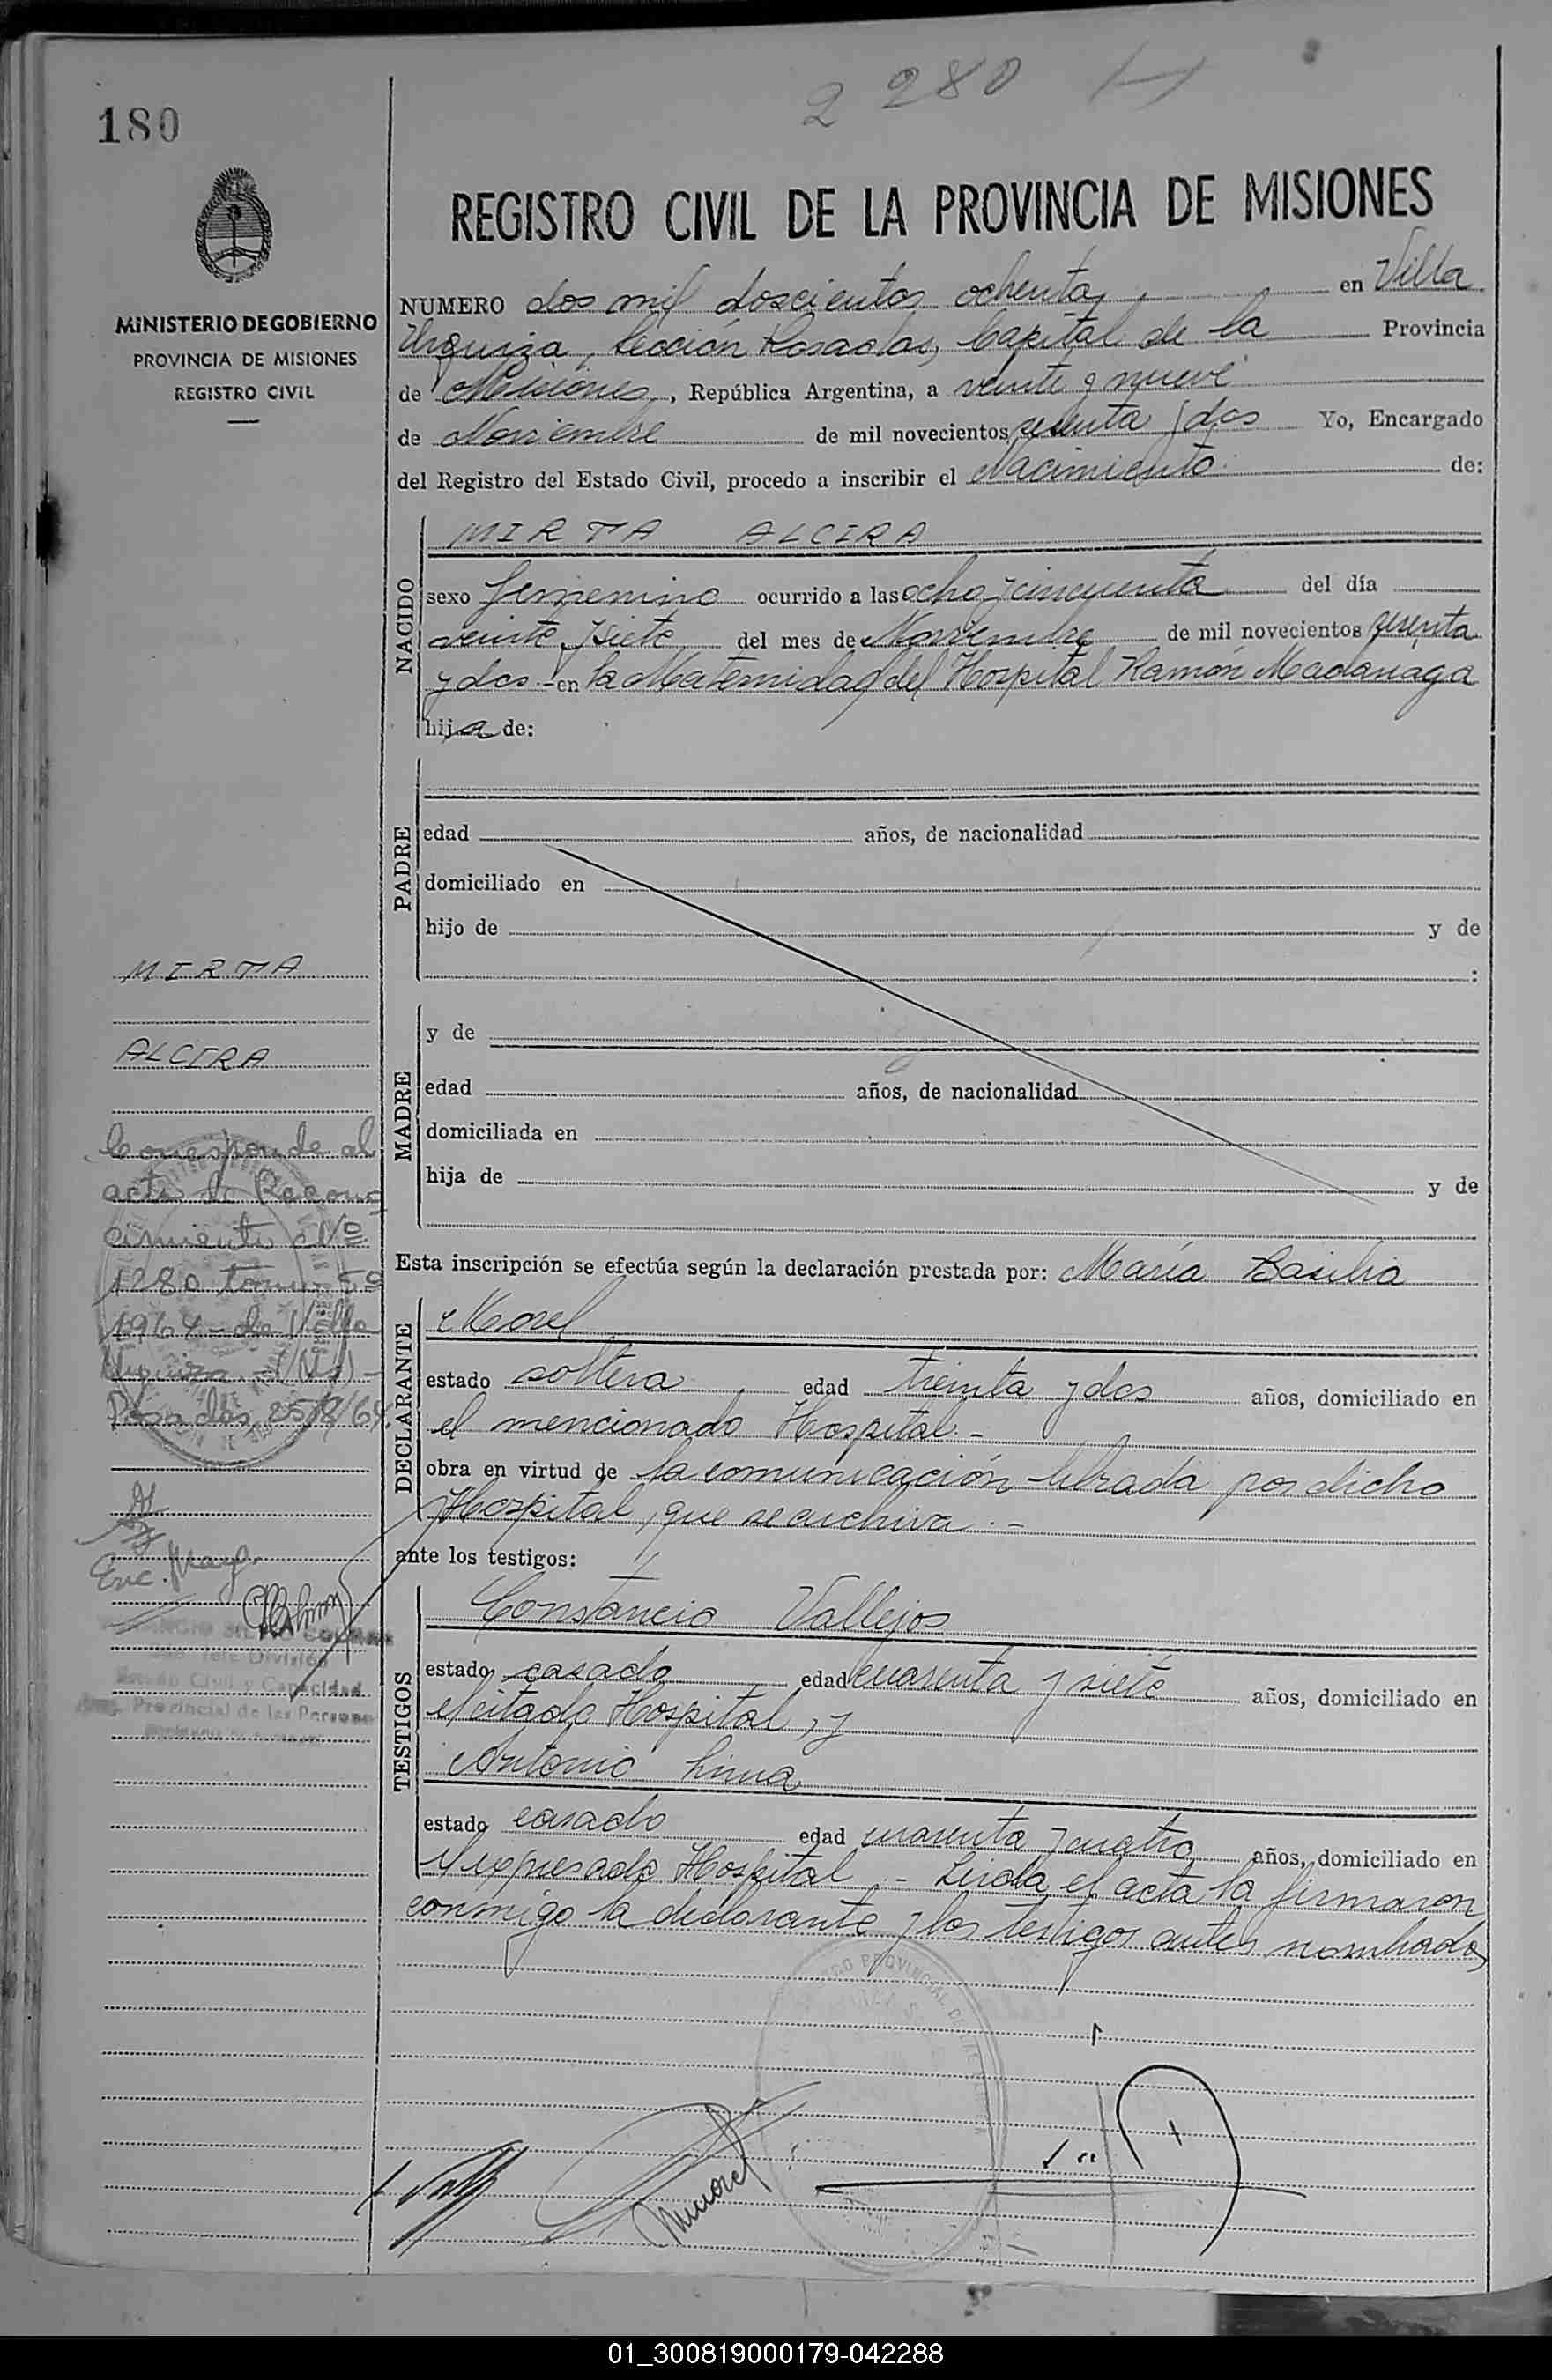 2 280
180
REGISTRO CIVIL DE LA PROVINCIA DE MISIONES
MINISTERIO DE GOBIERNO
PROVINCIA DE MISIONES
REGISTRO CIVIL
NUMERO dos mil doscientos ochenta, en Villa
Urquiza, Sección Posadas, Capital de la Provincia
de Misiones, República Argentina, a veinte y nueve
de Noviembre de mil novecientos sesenta y dos Yo, Encargado
del Registro del Estado Civil, procedo a inscribir el Nacimiento de:
NACIDO
MIRTA ALCIRA
sexo femenino ocurrido a las ocho y cincuenta del día
veinte y siete del mes de Noviembre de mil novecientos sesenta
y dos - en la Maternidad del Hospital Ramón Madariaga
hija de:
PADRE
edad años, de nacionalidad
domiciliado en
hijo de y de
:
MADRE
y de
edad años, de nacionalidad
domiciliada en
hija de y de
Esta inscripción se efectúa según la declaración prestada por: María Basilia
DECLARANTE
Morel
estado soltera, edad treinta y dos años, domiciliado en
el mencionado Hospital. -
obra en virtud de la comunicación librada por dicho
Hospital, que se archiva. -
ante los testigos:
TESTIGOS
Constancio Vallejos
estado casado edad cuarenta y siete años, domiciliado en
el citado Hospital, y
Antonio Luna
estado casado edad cuarenta y cuatro años, domiciliado en
el expresado Hospital. - Leida el acta la firmaron
conmigo la declarante y los testigos antes nombrados
MIRTA
ALCIRA
Corresponde al
acta de Recono
cimiento Nº
1280 tomo 5º
1964 - de Villa
Urquiza
Posadas, 25/8/69
Enc. Marg.
Jefe División
Estado Civil y Capacidad
Provincial de las Personas
Morel
01_300819000179-042288